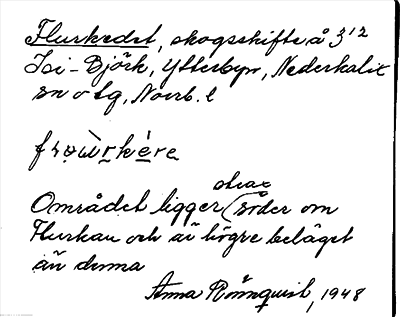 Flurkedet, skogsskifte å 3¹²
Isi-Björk, Ytterbyn, Nederkalix
sn o tg, Norrb. l
strax
Området ligger (söder om
Flurkau och är högre beläget
än denna
Anna Rönnquist, 1948